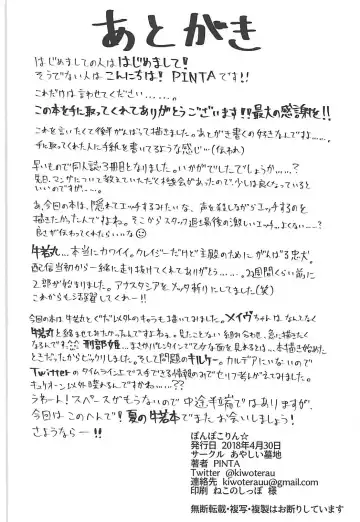 あとがき
はじめましての人ははじめまして!
そうでない人はこんにちは! PINTAです!!
これだけは言わせてください......。
この本を手に取ってくれてありがとうございます!!最大の感謝を!!
これを言いたくて後半がんばって描きました。あとがき書くの好きなんですよ......。
手に取ってくれた人に手紙を書いてるような感じ...(伝われ)
早いもので同人誌3冊目となりました。いかがでしたでしょうか......?
先日、マンガについて教えていただく機会があったので少しは良くなっていると
いいのですが......。
あ、今回の本は、隠れてエッチするみたいな、声を抑えながらエッチするのを
描きたかったんですよね。そこからスタッフ退場後の激しいエッチ...よくない...?
良さが伝わってくれたらいいな
牛若丸...本当にカワイイ。クレイジーだけど主殿のためにがんばる忠犬。
配信当初から一緒に走り抜けてくれてありがとう......。2週間くらい前に
2部が始まりました。アナスタシアをブッタ斬りにしてました(笑)
これからも活躍してくれー!!
今回の本は牛若丸とぐだ以外のキャラも描いてみました。メイヴちゃんはなんとなく
牛若丸と絡ませてみたかったんですよね。見たことない組み合わせ、急に描きたく
なるんです。刑部姫...まさかバレンタインででかな面を見れるとは...本描き始めた
ときだったからビックリしました。そして問題のキルケー。カルデアにいないので
Twitterのタイムライン上で入手できる情報のみでセリフ考えがえてみました。
キュケオーン以外喋れるんですかね......??
うおーん!スペースがもうないので中途半端ではありますが、
今回はこのへんで!夏の牛若本でまたお会いしましょう!
さようならー!!
ぽんぽこりん☆
発行日 2018年4月30日
サークル あやしい墓地
著者 PINTA
Twitter @kiwoterau
連絡先 kiwoterauu@gmail.com
印刷 ねこのしっぽ 様
無断転載・複写・複製はお断りしています